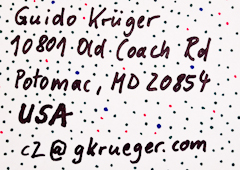 Guido Krüger
10801 Old Coach Rd
Potomac, MD 20854
USA
c2@gkrueger.com